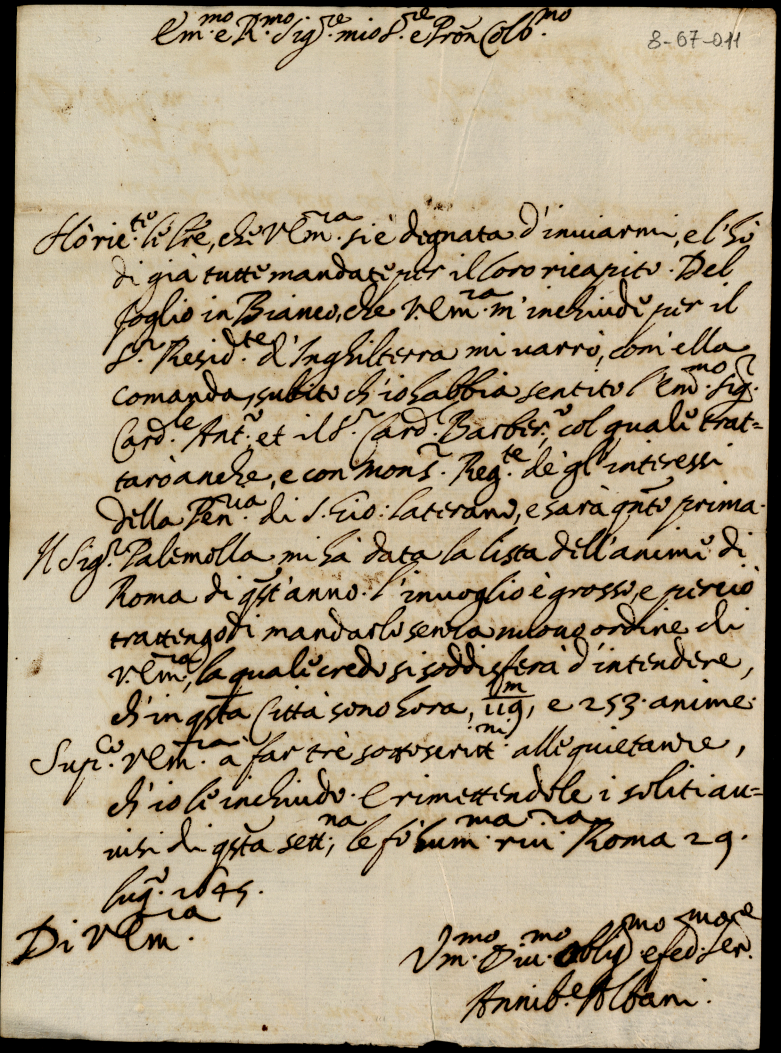 Em.mo e R.mo Sig.re mio S.re e Pron Colo.mo
8-67-011
Hò rice.te le lre, che V.Em.ria si è degnata d'inuiarmi, e l'hò
di già tutte mandate per il loro ricapito. Del
foglio in Bianco, che V.Em.ria m'inchiude per il
S.r Resid.te d'Inghilterra mi uarrò, com'ella
comanda, subito ch'io habbia sentito l'Em.mo Sig.r
Card.le Ant.o et il S.r Card. Barber.o col quale trat=
tarò anche, e con Mons.r Reg.te de gl'interessi
della Pen.ria di S. Gio: Laterano, e sarà qnto prima.
Il Sig.r Palemolla mi hà data la lista dell'anime di
Roma di qst'anno. l'inuoglio è grosso, e perciò
trattengo di mandarlo senza nuouo ordine di
V.Em.ria, la quale credo si soddisferà d'intendere,
ch'in qsta Città sono hora, 119m, e 253. anime.
Sup.co V.Em.ria à far trè sottoscritt.ni alle quietanze,
ch'io le inchiudo. E rimettendole i soliti au=
uisi di qsta sett.na, le fò hum.ma riu.ria Roma 29.
lug.o 1645.
Di V.Em.ria
Vm.mo Diu.mo oblig.mo e fed. ser.
Annib.e Albani.